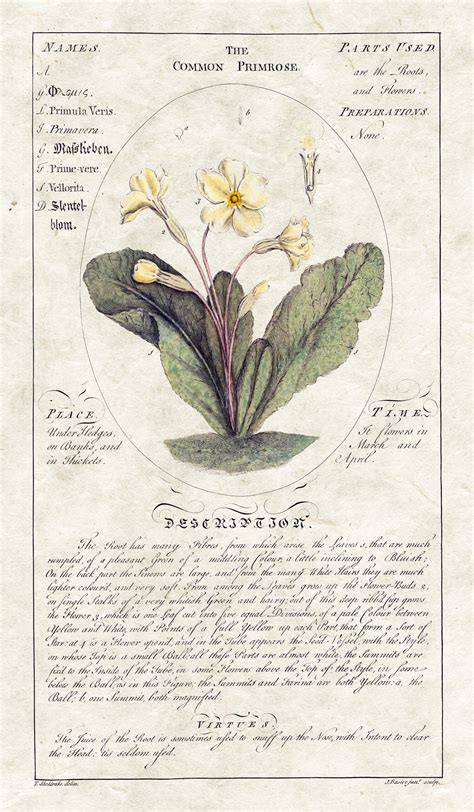 NAMES.
A.
G. Φλομις.
L. Primula Veris.
I. Primavera.
G. Maſslieben.
F. Prime-vere.
S. Vellorita.
D. Slentel-
blom.
THE
COMMON PRIMROSE.
PARTS USED
are the Roots,
and Flowers.
PREPARATIONS.
None.
b
4
3
2
1
5
PLACE.
Under Hedges,
on Banks, and
in Thickets.
TIME.
It flowers in
March and
April.
DESCRIPTION.
The Root has many Fibres, from which arise the Leaves 1, that are much
rumpled, of a pleasant Green of a middling Colour, a little inclining to Bluish;
On the back part the Sinews are large, and from the many White Hairs they are much
lighter colourd, and very soft. From among the Leaves grows up the Flower-Buds 2,
on single Stalks of a very whitish Green and hairy; out of this deep ribb'd Cup grows
the Flower 3, which is one Leaf cut into five equal Divisions, of a pale Colour between
Yellow and White, with Points of a full Yellow up each Part, that form a Sort of
Star: at 4 is a Flower opened, and in the Tube appears the Seed-Vessel, with the Style,
on whose Top is a small Ball: all these Parts are almost white; the Summits are
fixed to the Inside of the Tube, in some Flowers above the Top of the Style, in some
below the Ball, as in this Figure; the Summits and Farina are both Yellow: a, the
Ball; b, one Summit, both magnified.
VIRTUES.
The Juice of the Root is sometimes used to snuff up the Nose, with Intent to clear
the Head: 'tis seldom used.
T. Sheldrake delin.
J. Basire sculp.